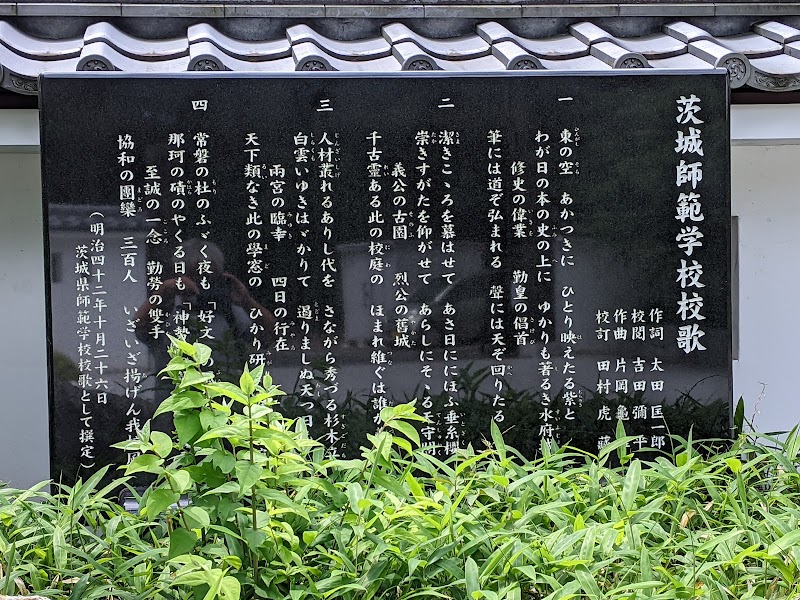 茨城師範学校校歌
作詞 太田匡一郎
校閲 吉田彌平
作曲 片岡亀
校訂 田村虎藏
一
東の空 あかつきに ひとり映えたる紫と
わが日の本の史の上に ゆかりも著るき水府
修史の偉業 勤皇の倡首
筆には道ぞ弘まれる 聲には天ぞ回りたる
二
潔きこゝろを慕はせて あさ日ににほふ垂糸櫻
崇きすがたを仰がせて あらしにそゝる天守
義公の古園 烈公の舊城
千古靈ある此の校庭の ほまれ維ぐは誰
三
人材叢れるありし代を さながら秀づる杉木立
白雲いゆきはゞかりて 遏りましぬ天つ日
両宮の臨幸 四日の行在
天下類なき此の學窓の ひかり研
四
常磐の杜のふゞく夜も 「好文
那珂の磧のやくる日も 「神勢
至誠の一念 勤勞の雙手
協和の團欒 三百人 いざいざ揚げん我
（明治四十二年十月二十六日
茨城県師範学校校歌として撰定）